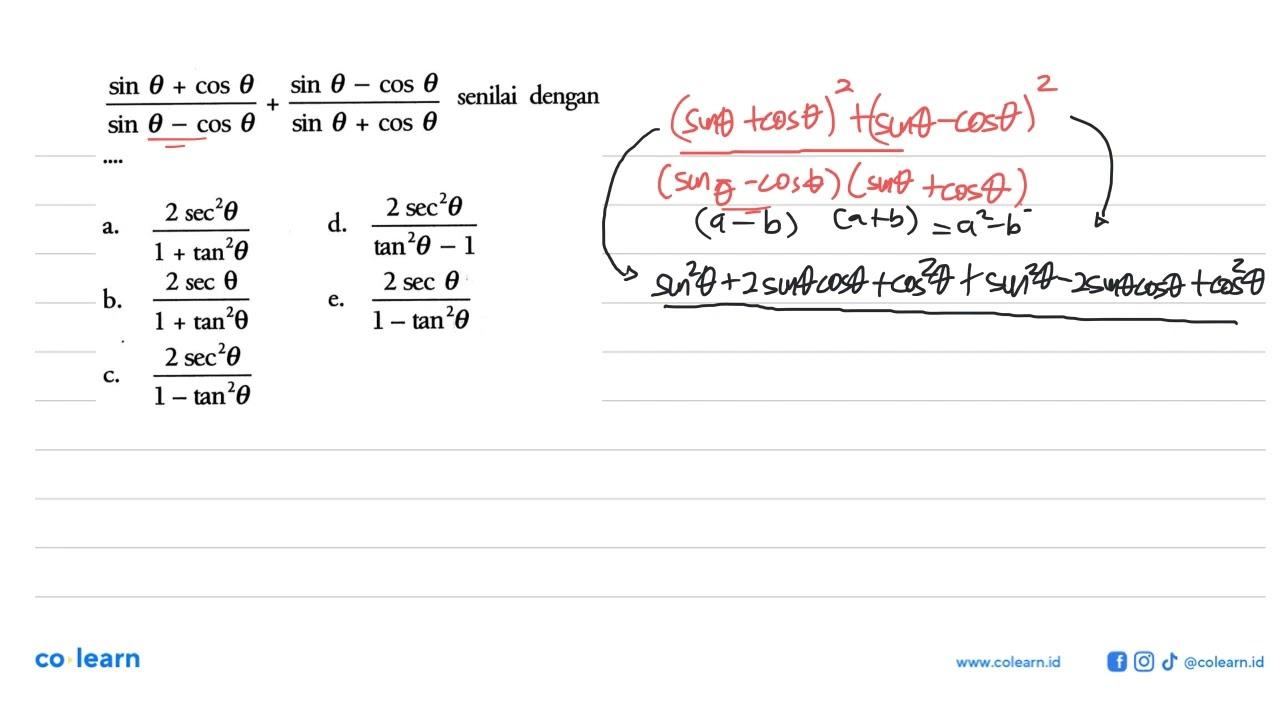 sin θ + cos θ / sin θ − cos θ + sin θ − cos θ / sin θ + cos θ senilai dengan
....
a. 2 sec²θ / 1 + tan²θ
b. 2 sec θ / 1 + tan²θ
c. 2 sec²θ / 1 − tan²θ
d. 2 sec²θ / tan²θ − 1
e. 2 sec θ / 1 − tan²θ
(sinθ + cosθ)² + (sinθ − cosθ)²
(sinθ − cosθ) (sinθ + cosθ)
(a − b) (a+b) = a² − b²
sin²θ + 2 sinθ cosθ + cos²θ + sin²θ − 2 sinθ cosθ + cos²θ
co learn
www.colearn.id @colearn.id